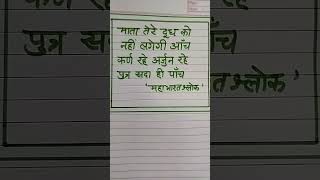 "माता तेरे दूध को
नहीं लगेगी आँच
कर्ण रहे अर्जुन रहे
पुत्र सदा ही पाँच
"महाभारत श्लोक"